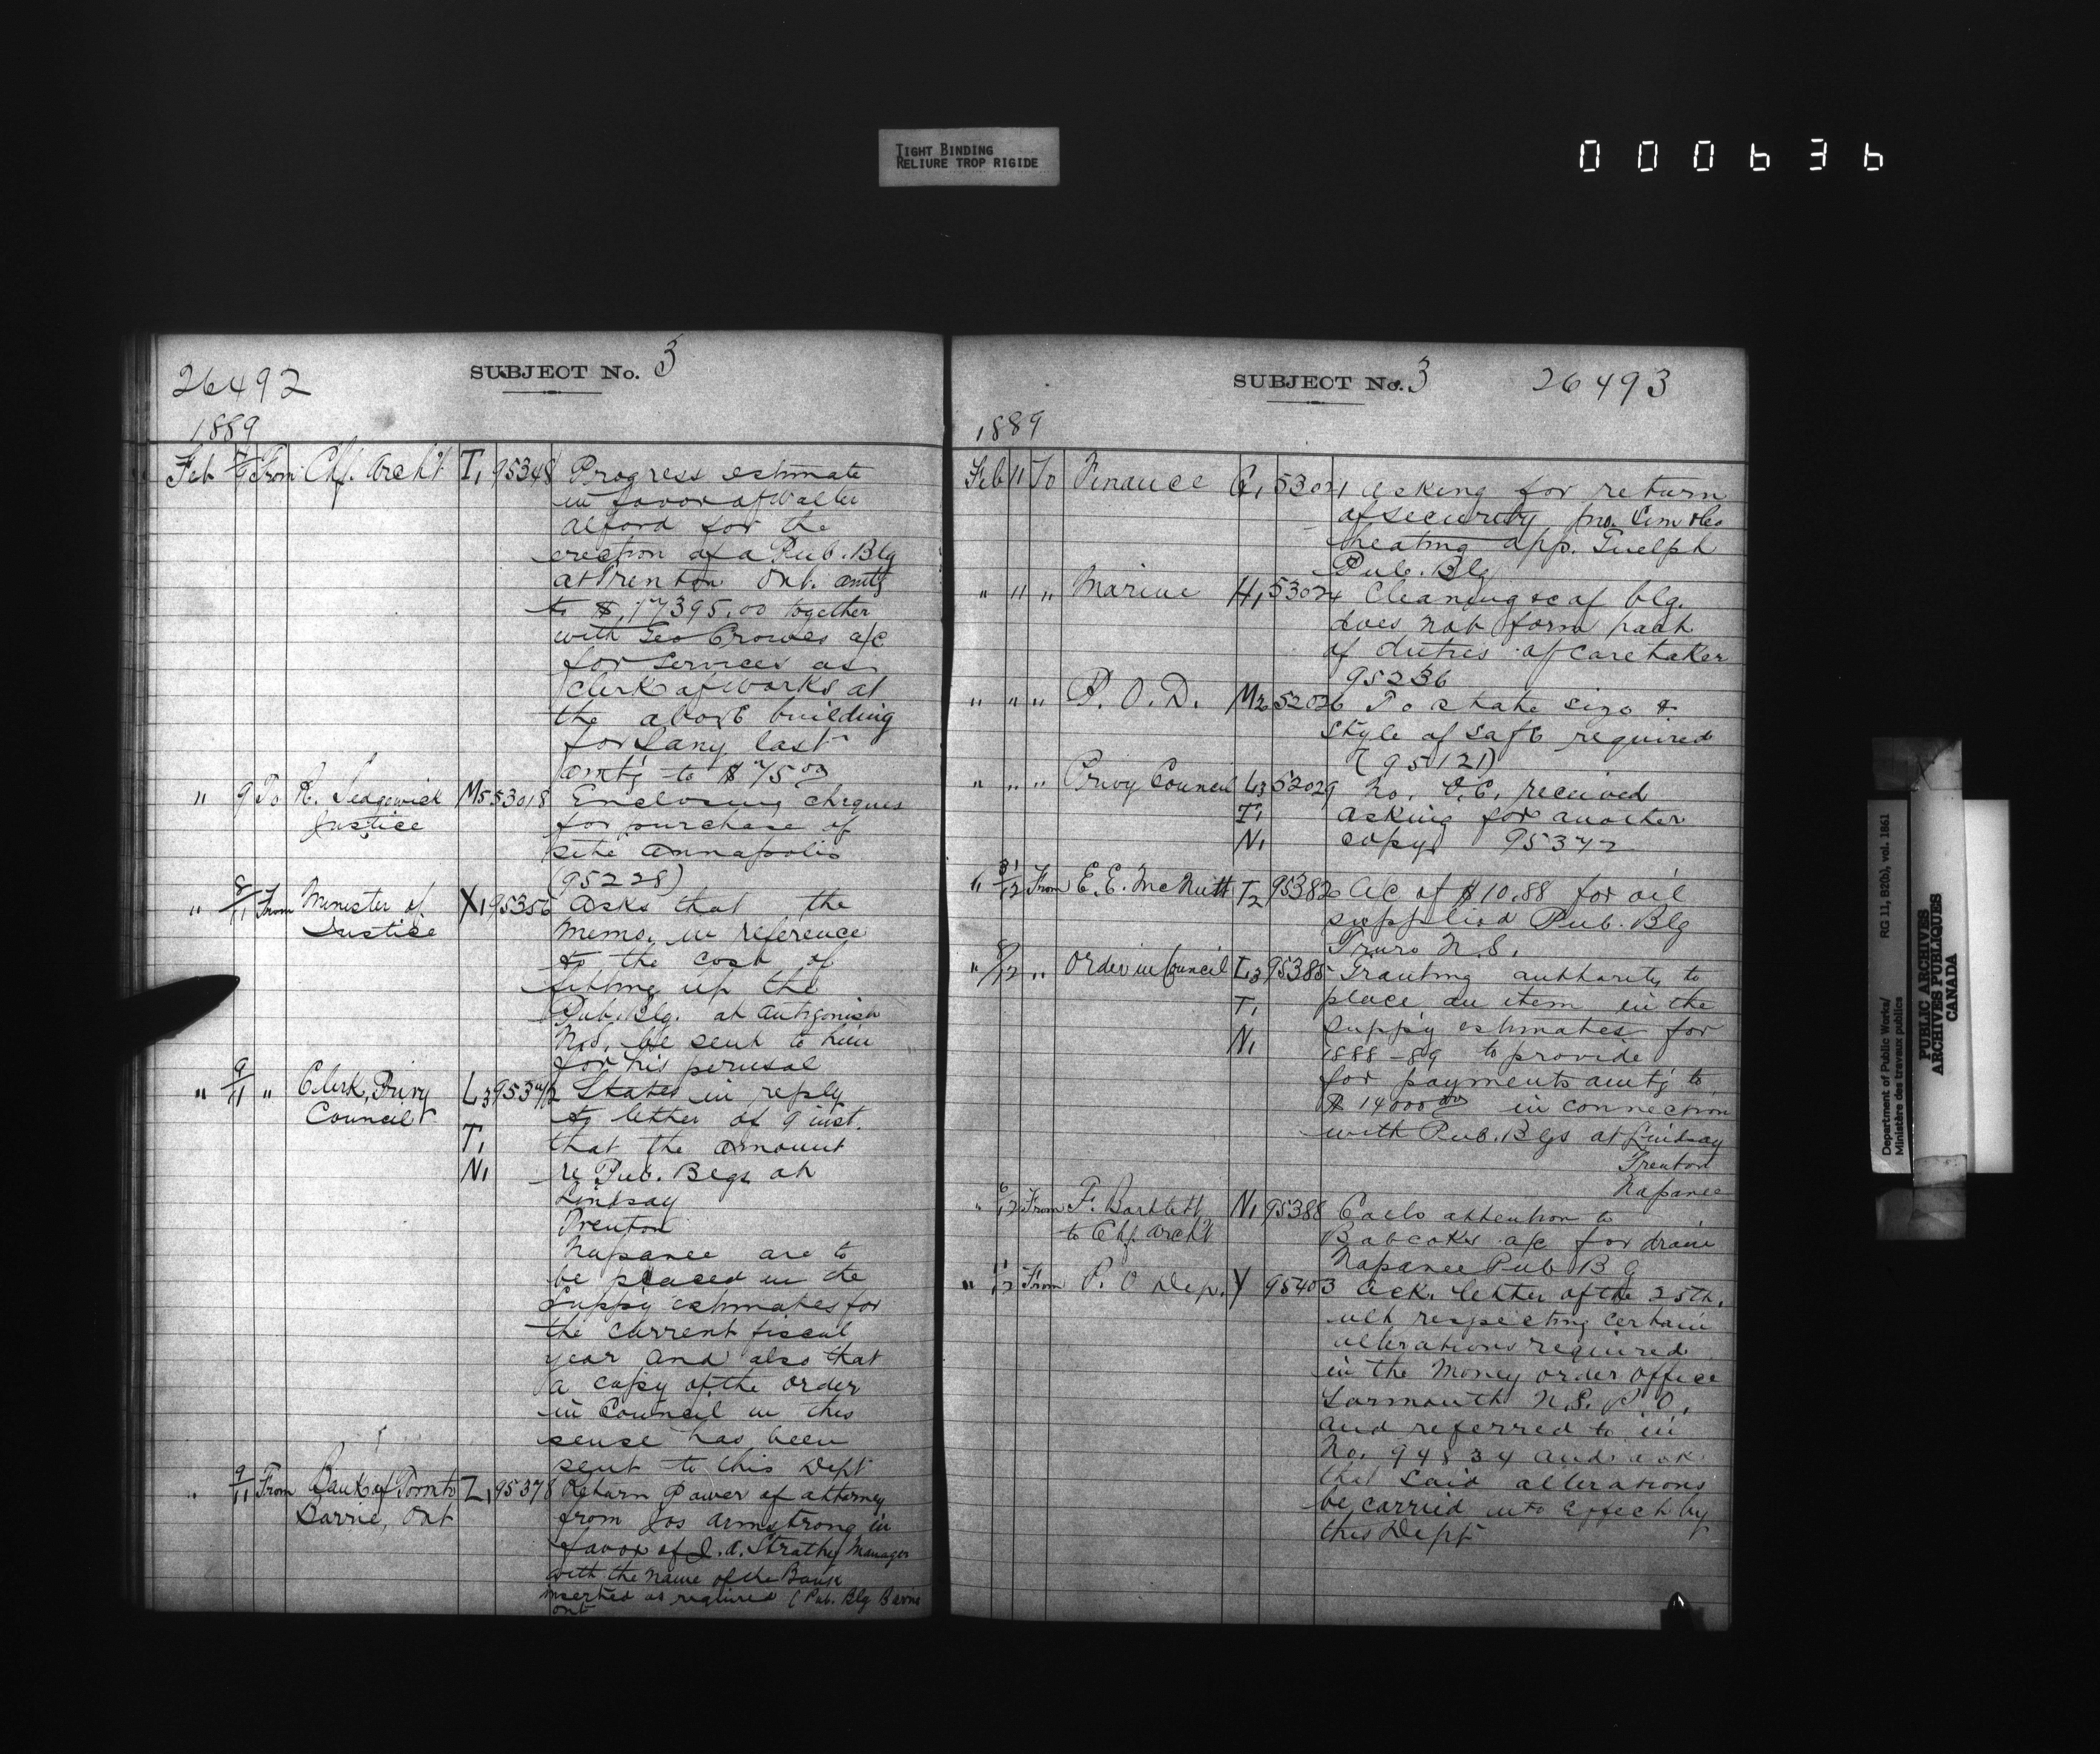 TIGHT BINDING
RELIURE TROP RIGIDE
000636
26492
SUBJECT No. 3
1889
Feb 7/9 From Chf. Arch't T1 95348 Progress estimate
in favor of Walter
Alford for the
erection of a Pub. Blg
at Trenton Ont. amtg
to $17395.00 together
with Geo Crowes a/c
for services as
Clerk of works at
the above building
for Jany last
amt'g to $75.00
" 9 To R. Sedgewick M5 53018 Enclosing cheques
Justice for purchase of
site Annapolis
(95228)
" 8/11 From Minister of X1 95356 Asks that the
Justice memo. in reference
to the cost of
fitting up the
Pub. Blg. at Antigonish
N.S. be sent to him
for his perusal
" 9/11 " Clerk, Privy L3 95372 States in reply
Council to letter of 9 inst.
T1 that the amount
N1 re Pub. Blgs at
Lindsay
Trenton
Napanee are to
be placed in the
Suppy estimates for
the current fiscal
year and also that
a copy of the order
in Council in this
sense has been
sent to this Dept
" 9/11 From Bank of Toronto Z1 95378 Return Power of attorney
Barrie, Ont from Jos Armstrong in
favor of J. A. Strathy Manager
with the name of the Bank
inserted as required (Pub. Blg Barrie
Ont
SUBJECT No. 3 26493
1889
Feb 11 To Finance 53021 Asking for return
of security
heating app. Guelph
Pub. Blg
" 11 " Marine H1 53024 Cleaning &c of blg.
does not form part
of duties of caretaker
95236
" " " P. O. D. M2 52026 To state size &
style of safe required
(95121)
" " " Privy Council L3 52029 No. O.C. received
T1 asking for another
N1 copy 95372
" 31/12 From E. E. McNutt T2 95382 A/c of $10.88 for oil
supplied Pub. Blg
Truro N.S.
" 8/12 " Order in Council L3 95385 Granting authority to
T1 place an item in the
N1 Suppy estimates for
1888-89 to provide
for payments amt'g to
$14000.00 in connection
with Pub. Blgs at Lindsay
Trenton
Napanee
" 6/12 From F. Bartlett N1 95388 Calls attention to
to Chf. Arch't Babcocks a/c for drain
Napanee Pub B G
" 11/12 From P. O Dep. Y 95403 Ack. letter of the 25th.
ult respecting certain
alterations required
in the Money order Office
Yarmouth N.S. P.O.
and referred to in
No. 94834 and ask
that said alterations
be carried into effect by
this Dept
Department of Public Works/
Ministère des travaux publics
RG 11, B2(b), vol. 1861
PUBLIC ARCHIVES
ARCHIVES PUBLIQUES
CANADA